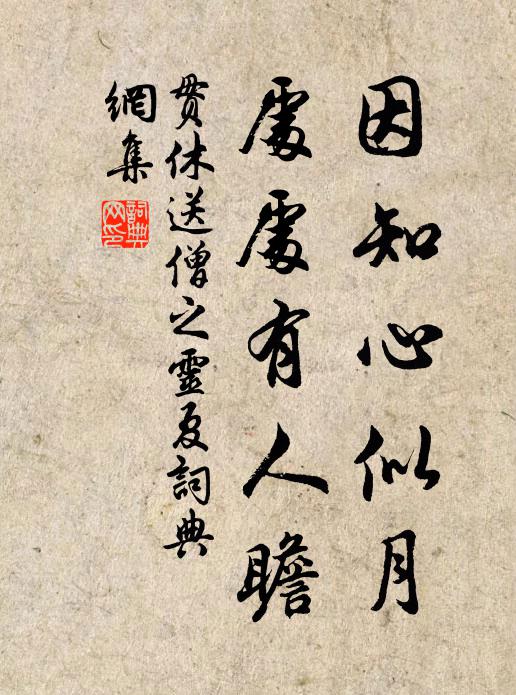 因知心似月
處處有人瞻
貫休送僧之靈夏詞典
網集
詞典
网印